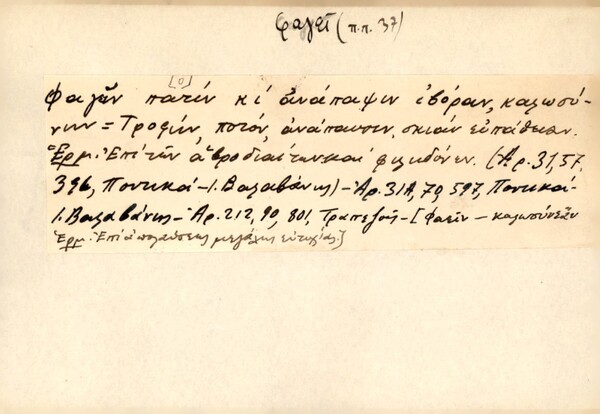 φαγεῖ (π.π. 37)
[ο]
Φαγεῖν ποτεῖν κι ἀνάπαψιν ἐβόραν, καλωσύ-
νην = Τροφήν, ποτόν, ἀνάπαυσιν, σκιάν εὐπάθειαν.
Ἑρμ. Ἐπί τῶν ἁβροδιαίτων καί φιληδόνων. (Ἀρ. 31, 57,
396, Ποντικά - Ι. Βαλαβάνης) - Ἀρ. 31Α, 70, 597, Ποντικά -
Ι. Βαλαβάνης - Ἀρ. 212, 90, 801, Τραπεζοῦς - [Φαεῖν - καλωσύνεαν
Ἑρμ. Ἐπί ἀπολαύσεως μεγάλης εὐτυχίας.]